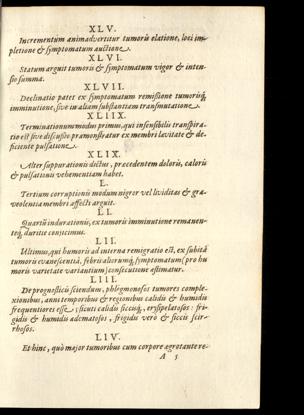 XLV.
Incrementum animadvertitur tumoris elatione, loci im-
pletione & symptomatum auctione.
XLVI.
Statum arguit tumoris & symptomatum vigor & inten-
sio summa.
XLVII.
Declinatio patet ex symptomatum remissione tumorisq́;
imminutione, sive in aliam substantiam transmutatione.
XLIIX.
Terminationum modus primus, qui insensibilis transpira-
tio est sive discussio præmonstratur ex membri levitate & de-
ficiente pulsatione.
XLIX.
Alter suppurationis dictus, præcedentem doloris, caloris
& pulsationis vehementiam habet.
L.
Tertium corruptionis modum nigror vel lividitas & gra-
veolentia membri affecti arguit.
LI.
Quartũ indurationis, ex tumoris imminutione remanen-
teq́; duritie conjicimus.
LII.
Ultimus, qui humoris ad interna remigratio est, ex subitâ
tumoris evanescentiâ, febris aliorumq́; symptomatum (pro hu
moris varietate variantium) consecutione æstimatur.
LIII.
De prognosticis sciendum, phlegmonosos tumores comple-
xionibus, anni temporibus & regionibus calidis & humidis
frequentiores esse; sicuti calidis siccisq́; erysipelatosos: fri-
gidis & humidis œdematosos, frigidis verò & siccis scir-
rhosos.
LIV.
Et hinc, quò major tumoribus cum corpore ægrotante re-
A 5